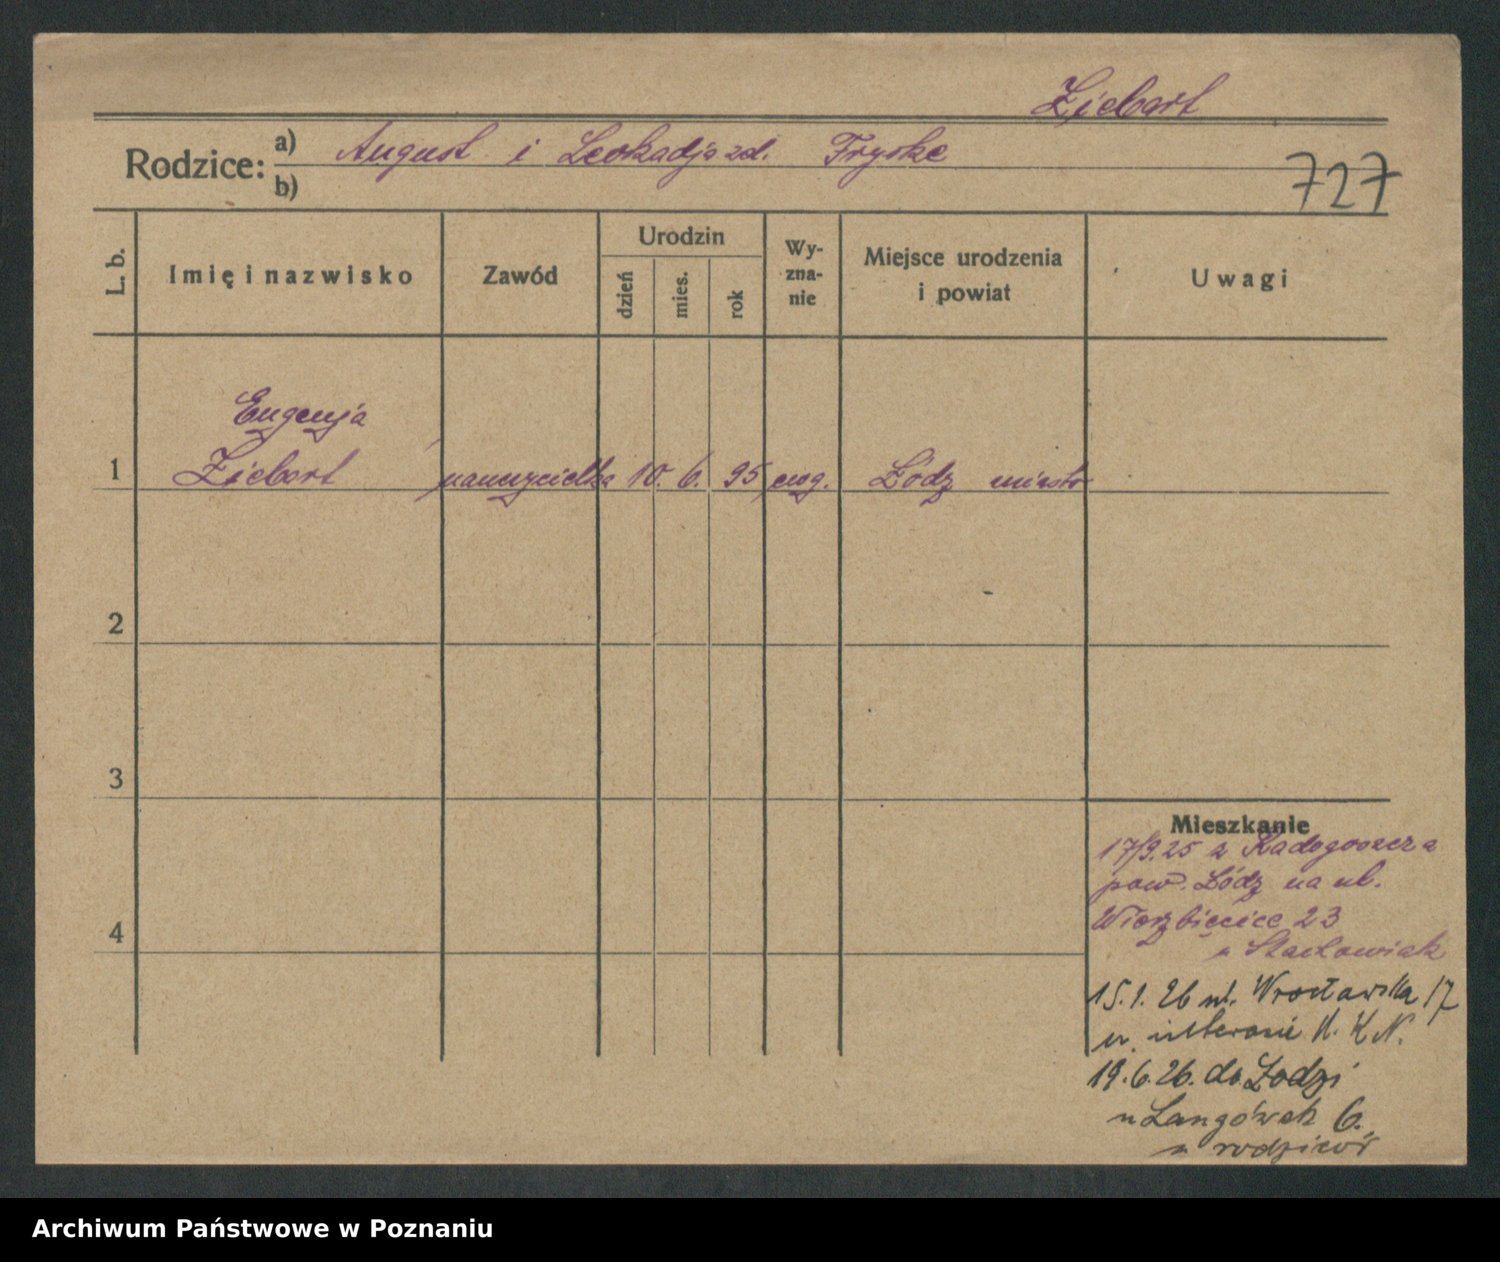 Ziebart
Rodzice: a) August i Leokadja zd. Fryske
b)
727
L. b.
Imię i nazwisko
Zawód
Urodzin
dzień
mies.
rok
Wy-
zna-
nie
Miejsce urodzenia
i powiat
Uwagi
Eugenja
1 Ziebart nauczycielka 10. 6. 95 ewg. Łódz miasto
2
3
4
Mieszkanie
17/9.25 z Radogoszcza
pow. Łódz na ul.
Wierzbięcice 23
u Stachowiak
15.1.26 ul. Wrocławska 17
u
19.6.26. do Łodzi
u Langówek 6.
u rodziców
Archiwum Państwowe w Poznaniu